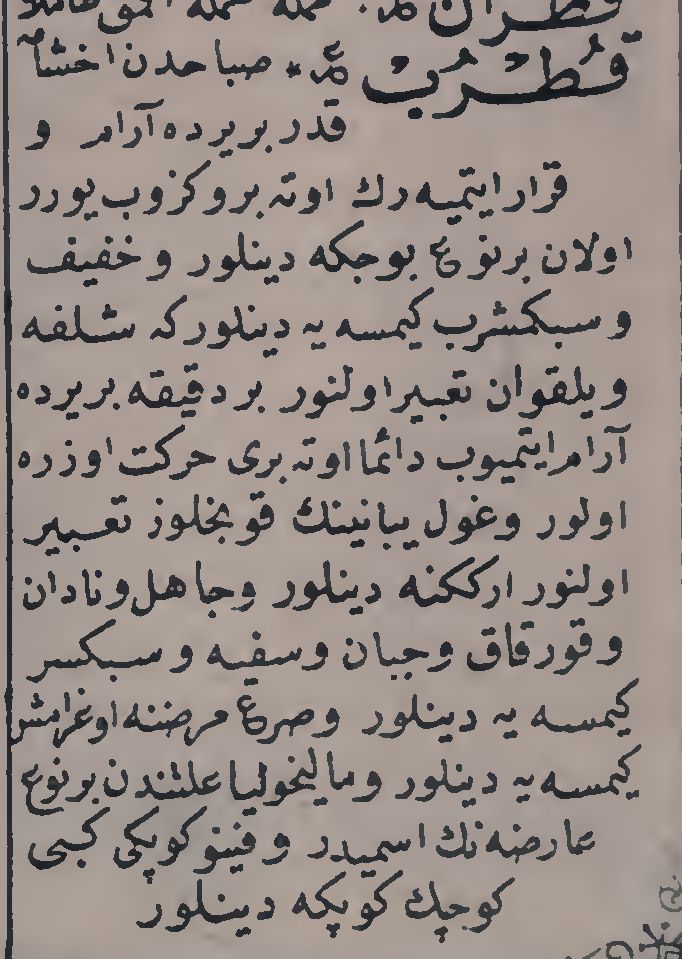 قطران
قُطْرُبْ عم * صباحدن اخشامه
قدر بر يرده آرام و
قرار ايتميه رك اوته برو كزوب يورر
اولان بر نوع بوجكه دينلور و خفيف
و سبكمشرب كيمسه يه دينلور كه شلفه
و يلقوان تعبير اولنور بر دقيقه بر يرده
آرام ايتميوب دائما اوته برى حركت اوزره
اولور و غول يبانينك قوبخلوز تعبير
اولنور ارككنه دينلور و جاهل و نادان
و قورقاق و جبان و سفيه و سبكسر
كيمسه يه دينلور و صرع مرضنه اوغرامش
كيمسه يه دينلور و ماليخوليا علتندن بر نوع
عارضه نك اسميدر و فينو كوپكى كبى
كوجك كوپكه دينلور